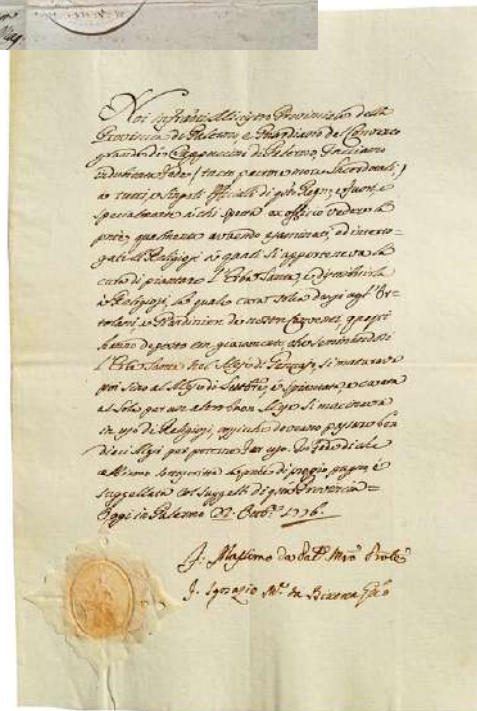 Noi infratti Ministro Provinciale della
Provincia di Palermo, e Guardiano del Convento
grande di Cappuccini di Palermo, facciamo
indubitata fede (tacto pectore more Sacerdotali)
a tutti, e singoli Officiali di q̃sto Regno, e fuori, e
specialmente a chi spetta ex officio vedere la
pñte, qualmente avendo esaminati, ed interro-
gati li Religiosi a quali si apparteneva la
cura di piantare l'Erba Santa, e distribuirla
a Religiosi, la quale cura suole darsi agl'Or-
tolani, e Giardinieri de nostri Conventi, quali
hanno deposto con giuramento, che seminandosi
l'Erba Santa nel Mese di Gennajo, si maturava
poi sino al Mese di Settbre, e spiantata, e curata
al Sole per un altro buon Mese si macinava
in uso di Religiosi, sicche dovevano passare ben
dieci Mesi per potersene far uso. In fede di che
la pñte di propio pugno, e
suggellata col suggello di q̃sta Provincia=
Oggi in Palermo 1776.
F. Massimo da Pal.º Mrõ Prole
F. Ignazio Mª. da Bivona